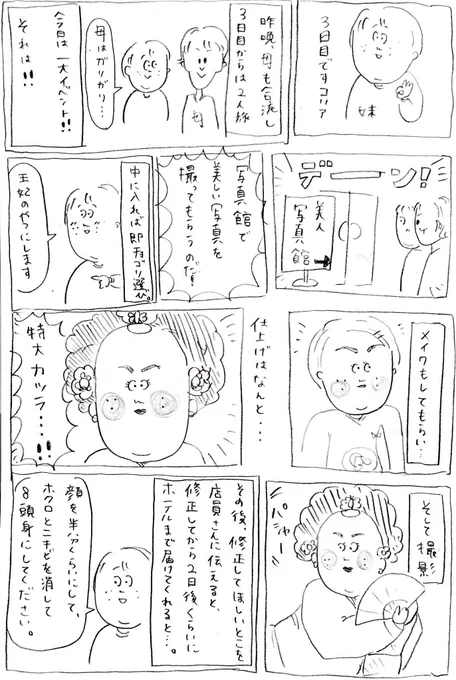 3日目ですコリア
妹
昨晩、母も合流し
3日目からは2人旅
母
母はガリガリ…
今日は一大イベント!!
それは!!
デーン!
美人
写真館
写真館で
美しい写真を
撮ってもらうのだ!
中に入れば即チョゴリ選び。
王妃のやつにします
メイクもしてもらい…
仕上げはなんと...
特大カツラ…!!
そして撮影
パシャー
その後、修正してほしいとこを
店員さんに伝えると、
修正してから2日後くらいに
ホテルまで届けてくれると…。
顔を半分くらいにして、
ホクロとニキビを消して
8頭身にしてください。